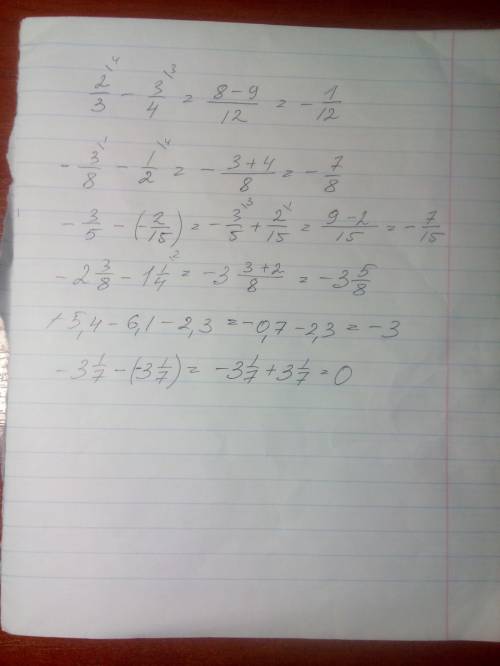 2/3 \4 − 3/4 \3 = (8−9)/12 = −1/12
−3/8 \1 − 1/2 \4 = −(3+4)/8 = −7/8
−3/5 − (−2/15) = −3/5 \3 + 2/15 \1 = (9−2)/15 = −7/15
−2 3/8 − 1 1/4 \2 = −3 (3+2)/8 = −3 5/8
+5,4 − 6,1 − 2,3 = −0,7 − 2,3 = −3
−3 1/7 − (−3 1/7) = −3 1/7 + 3 1/7 = 0